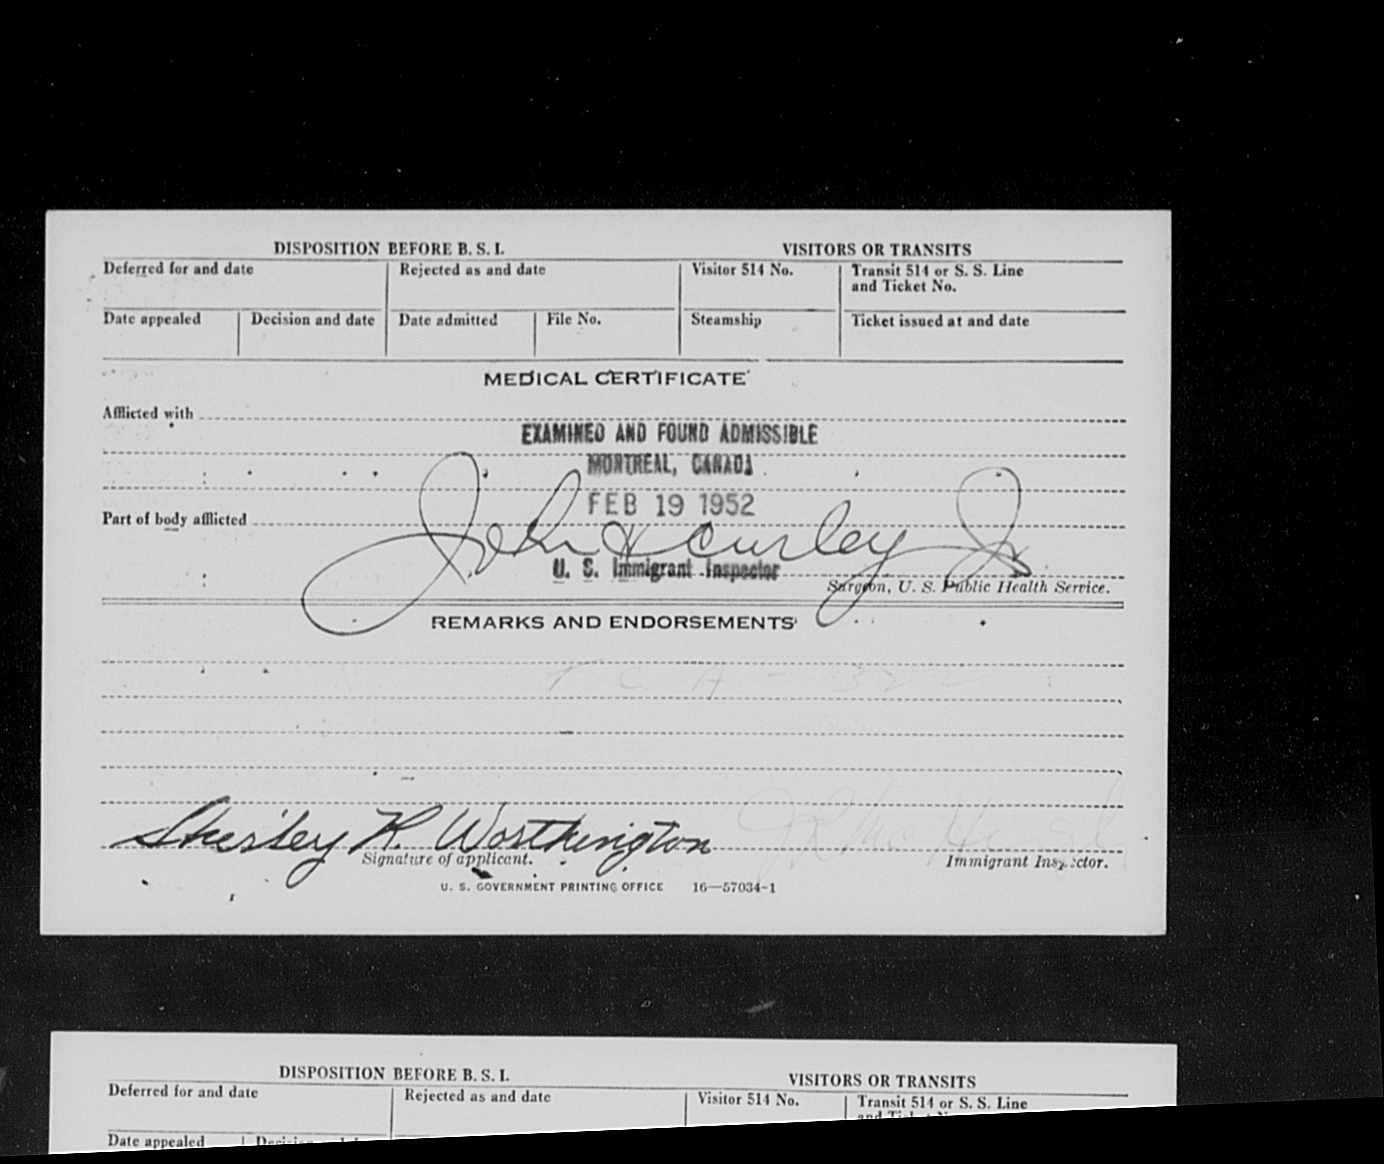 DISPOSITION BEFORE B. S. I. VISITORS OR TRANSITS
Deferred for and date Rejected as and date Visitor 514 No. Transit 514 or S. S. Line
and Ticket No.
Date appealed Decision and date Date admitted File No. Steamship Ticket issued at and date
MEDICAL CERTIFICATE
Afflicted with
EXAMINED AND FOUND ADMISSIBLE
MONTREAL, CANADA
FEB 19 1952
Part of body afflicted
John H Curley Jr
U. S. Immigrant Inspector
Surgeon, U. S. Public Health Service.
REMARKS AND ENDORSEMENTS
T C A - 322
Shirley R. Worthington
Signature of applicant. Immigrant Inspector.
U. S. GOVERNMENT PRINTING OFFICE 16—57034-1
DISPOSITION BEFORE B. S. I. VISITORS OR TRANSITS
Deferred for and date Rejected as and date Visitor 514 No. Transit 514 or S. S. Line
and Ticket N
Date appealed Decision